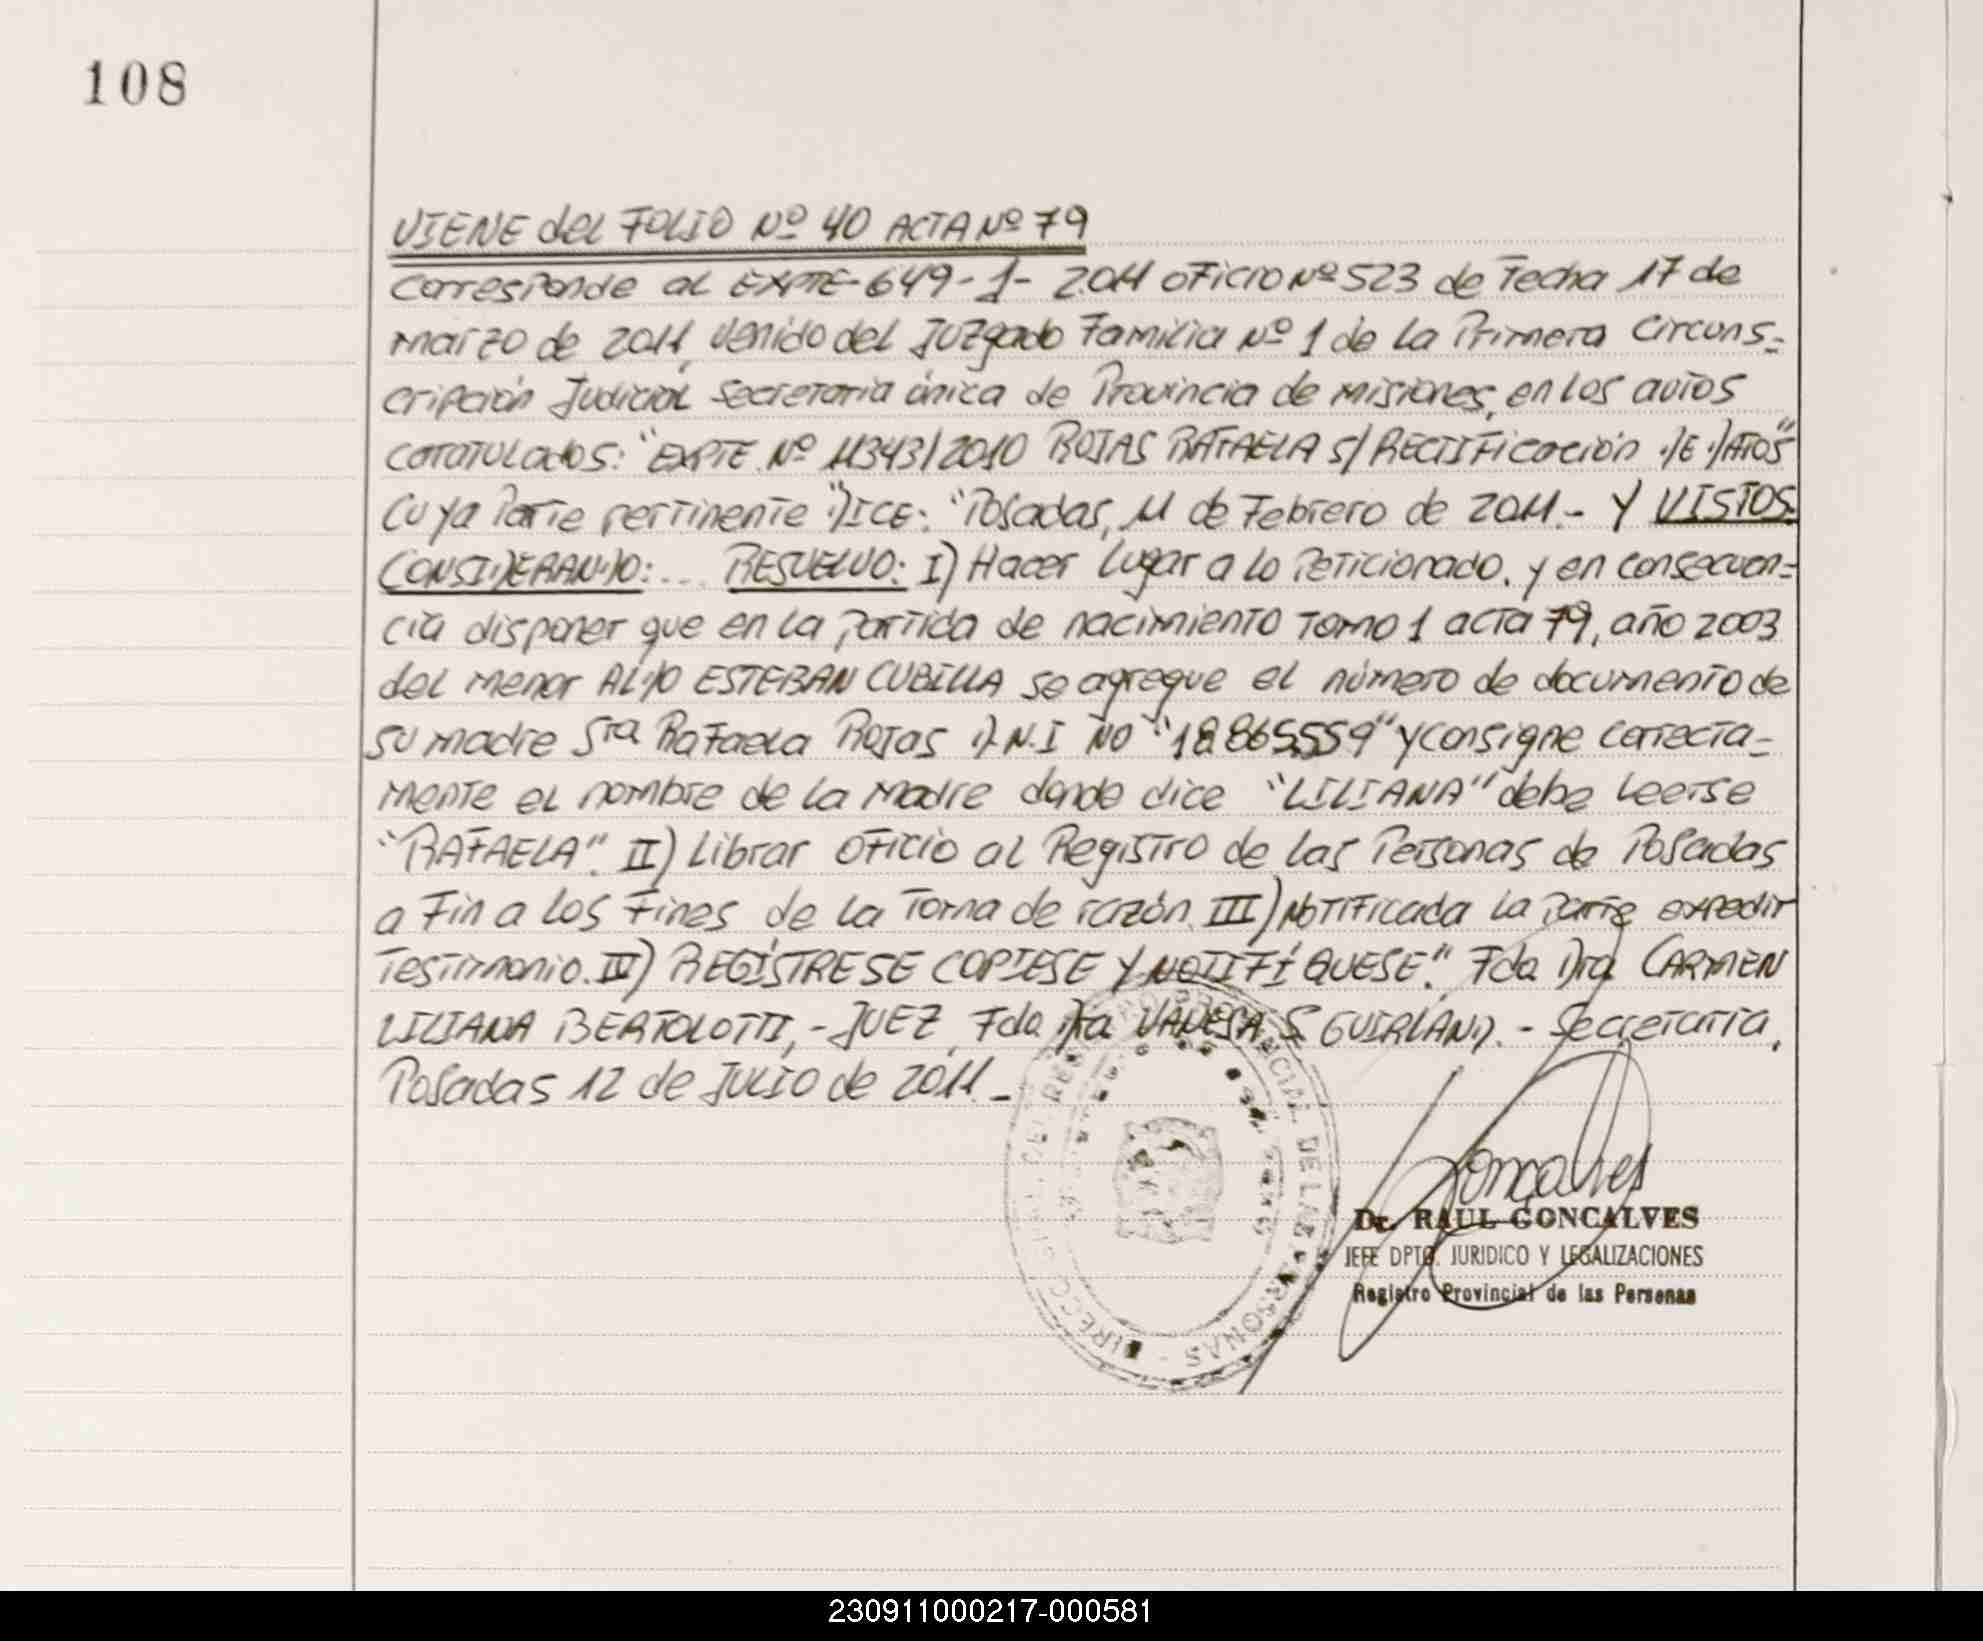 108
VIENE del FOLIO Nº 40 ACTA Nº 79
Corresponde al EXPTE-649-J- 2011 oficio Nº 523 de fecha 17 de
marzo de 2011, venido del Juzgado Familia Nº 1 de la Primera Circuns-
cripción Judicial Secretaria única de Provincia de Misiones, en los autos
caratulados: "EXPTE. Nº 11343/2010 ROJAS RAFAELA S/ RECTIFICación DE DATOS"
Cuya Parte pertinente DICE: "Posadas, 11 de Febrero de 2011.- Y VISTOS:
CONSIDERANDO:... RESUELVO: I) Hacer lugar a lo Peticionado. y en consecuen-
cia disponer que en la Partida de nacimiento Tomo 1 acta 79, año 2003
del menor ALDO ESTEBAN CUBILLA se agregue el número de documento de
su madre Sra Rafaela Rojas D.N.I NO "18865559" y consigne correcta-
mente el nombre de la madre donde dice "LILIANA" debe leerse
"RAFAELA". II) Librar oficio al Registro de las Personas de Posadas
a Fin a los Fines de la Toma de razón. III) Notificada la Parte expedir
Testimonio. IV) REGÍSTRESE COPIESE Y NOTIFÍQUESE." Fdo Dra CARMEN
LILIANA BERTOLOTTI, - JUEZ, Fdo Dra VANESA S GUIRLAND. - Secretaria,
Posadas 12 de Julio de 2011.-
PROVINCIAL DE LAS PERSONAS
Goncalves
Dr. RAUL GONCALVES
JEFE DPTO. JURIDICO Y LEGALIZACIONES
Registro Provincial de las Personas
230911000217-000581